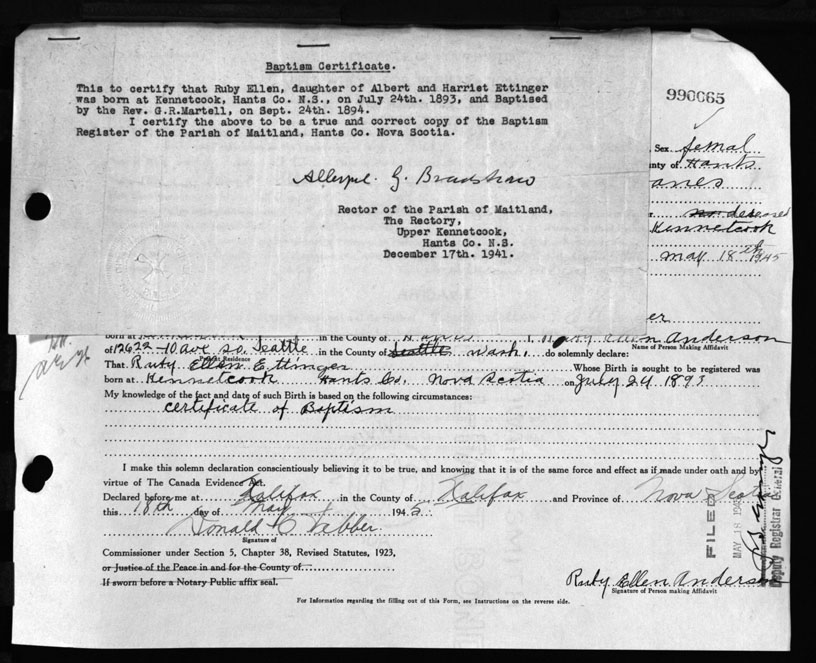 Baptism Certificate.
This to certify that Ruby Ellen, daughter of Albert and Harriet Ettinger
was born at Kennetcook, Hants Co. N.S., on July 24th. 1893, and Baptised
by the Rev. G.R.Martell, on Sept. 24th. 1894.
I certify the above to be a true and correct copy of the Baptism
Register of the Parish of Maitland, Hants Co. Nova Scotia.
G. Bradshaw
Rector of the Parish of Maitland,
The Rectory,
Upper Kennetcook,
Hants Co. N.S.
December 17th. 1941.
990065
Sex femal
nty of Hants
anes
no deseased
Kennetcook
May 18th 1945
er
born at in the County of Hants I, Ruby Ellen Anderson
Present Residence Name of Person Making Affidavit
of 1262-10 ave so. Seattle in the County of Seattle Wash. do solemnly declare:
That Ruby Ellen Ettinger Whose Birth is sought to be registered was
born at Kennetcook Hants Co. Nova Scotia on July 24 1893
My knowledge of the fact and date of such Birth is based on the following circumstances:
certificate of Baptism
I make this solemn declaration conscientiously believing it to be true, and knowing that it is of the same force and effect as if made under oath and by
virtue of The Canada Evidence Act.
Declared before me at Halifax in the County of Halifax and Province of Nova Scotia
this 18th day of May 1945
Donald C Webber
Signature of
Commissioner under Section 5, Chapter 38, Revised Statutes, 1923,
or Justice of the Peace in and for the County of
If sworn before a Notary Public affix seal.
FILED
MAY 18 194
Deputy Registrar General
Ruby Ellen Anderson
Signature of Person making Affidavit
For Information regarding the filling out of this Form, see Instructions on the reverse side.